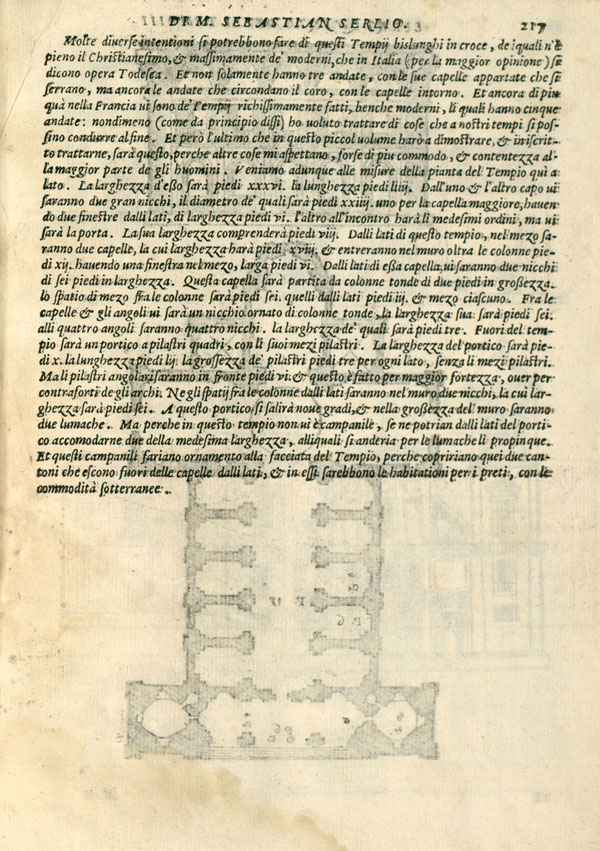 DI M. SEBASTIAN SERLIO. 217
Molte diverse intentioni si potrebbono fare di questi Tempij bislunghi in croce, de i quali n'è
pieno il Christianesimo, & massimamente de' moderni, che in Italia (per la maggior opinione) se
dicono opera Todesca. Et non solamente hanno tre andate, con le sue capelle appartate che se
serrano, ma ancora le andate che circondano il coro, con le capelle intorno. Et ancora di piu
quà nella Francia ui sono de' Tempij richissimamente fatti, benche moderni, li quali hanno cinque
andate: nondimeno (come da principio dissi) ho uoluto trattare di cose che a nostri tempi si pos-
sino condurre al fine. Et però l'ultimo che in questo piccol uolume harò a dimostrare, & in iscrit-
to trattarne, sarà questo, perche altre cose mi aspettano, forse di piu commodo, & contentezza al-
la maggior parte de gli huomini. Veniamo adunque alle misure della pianta del Tempio quì a
lato. La larghezza d'esso sarà piedi xxxvi. la lunghezza piedi liiij. Dall'uno & l'altro capo ui
saranno due gran nicchi, il diametro de' quali sarà piedi xxiiij. uno per la capella maggiore, hauen-
do due finestre dalli lati, di larghezza piedi vi. l'altro all'incontro harà li medesimi ordini, ma ui
sarà la porta. La sua larghezza comprenderà piedi viij. Dalli lati di questo tempio, nel mezo sa-
ranno due capelle, la cui larghezza harà piedi xviij. & entreranno nel muro oltra le colonne pie-
di xij. hauendo una finestra nel mezo, larga piedi vi. Dalli lati di essa capella, ui saranno due nicchi
di sei piedi in larghezza. Questa capella sarà partita da colonne tonde di due piedi in grossezza.
lo spatio di mezo fra le colonne sarà piedi sei. quelli dalli lati piedi iij. & mezo ciascuno. Fra le
capelle & gli angoli ui sarà un nicchio ornato di colonne tonde, la larghezza sua sarà piedi sei.
alli quattro angoli saranno quattro nicchi. la larghezza de' quali sarà piedi tre. Fuori del tem-
pio sarà un portico a pilastri quadri, con li suoi mezi pilastri. La larghezza del portico sarà pie-
di x. la lunghezza piedi lij. la grossezza de' pilastri piedi tre per ogni lato, senza li mezi pilastri.
Ma li pilastri angolari saranno in fronte piedi vi. & questo è fatto per maggior fortezza, ouer per
contraforte de gli archi. Ne gli spatij fra le colonne dalli lati saranno nel muro due nicchi, la cui lar-
ghezza sarà piedi sei. A questo portico si salirà noue gradi, & nella grossezza del muro saranno
due lumache. Ma perche in questo tempio non ui è campanile, se ne potrian dalli lati del porti-
co accomodarne due della medesima larghezza, alli quali si anderia per le lumache li propinque.
Et questi campanili fariano ornamento alla facciata del Tempio, perche copririano quei due can-
toni che escono fuori delle capelle dalli lati, & in essi sarebbono le habitationi per i preti, con le
commodità sotterranee.